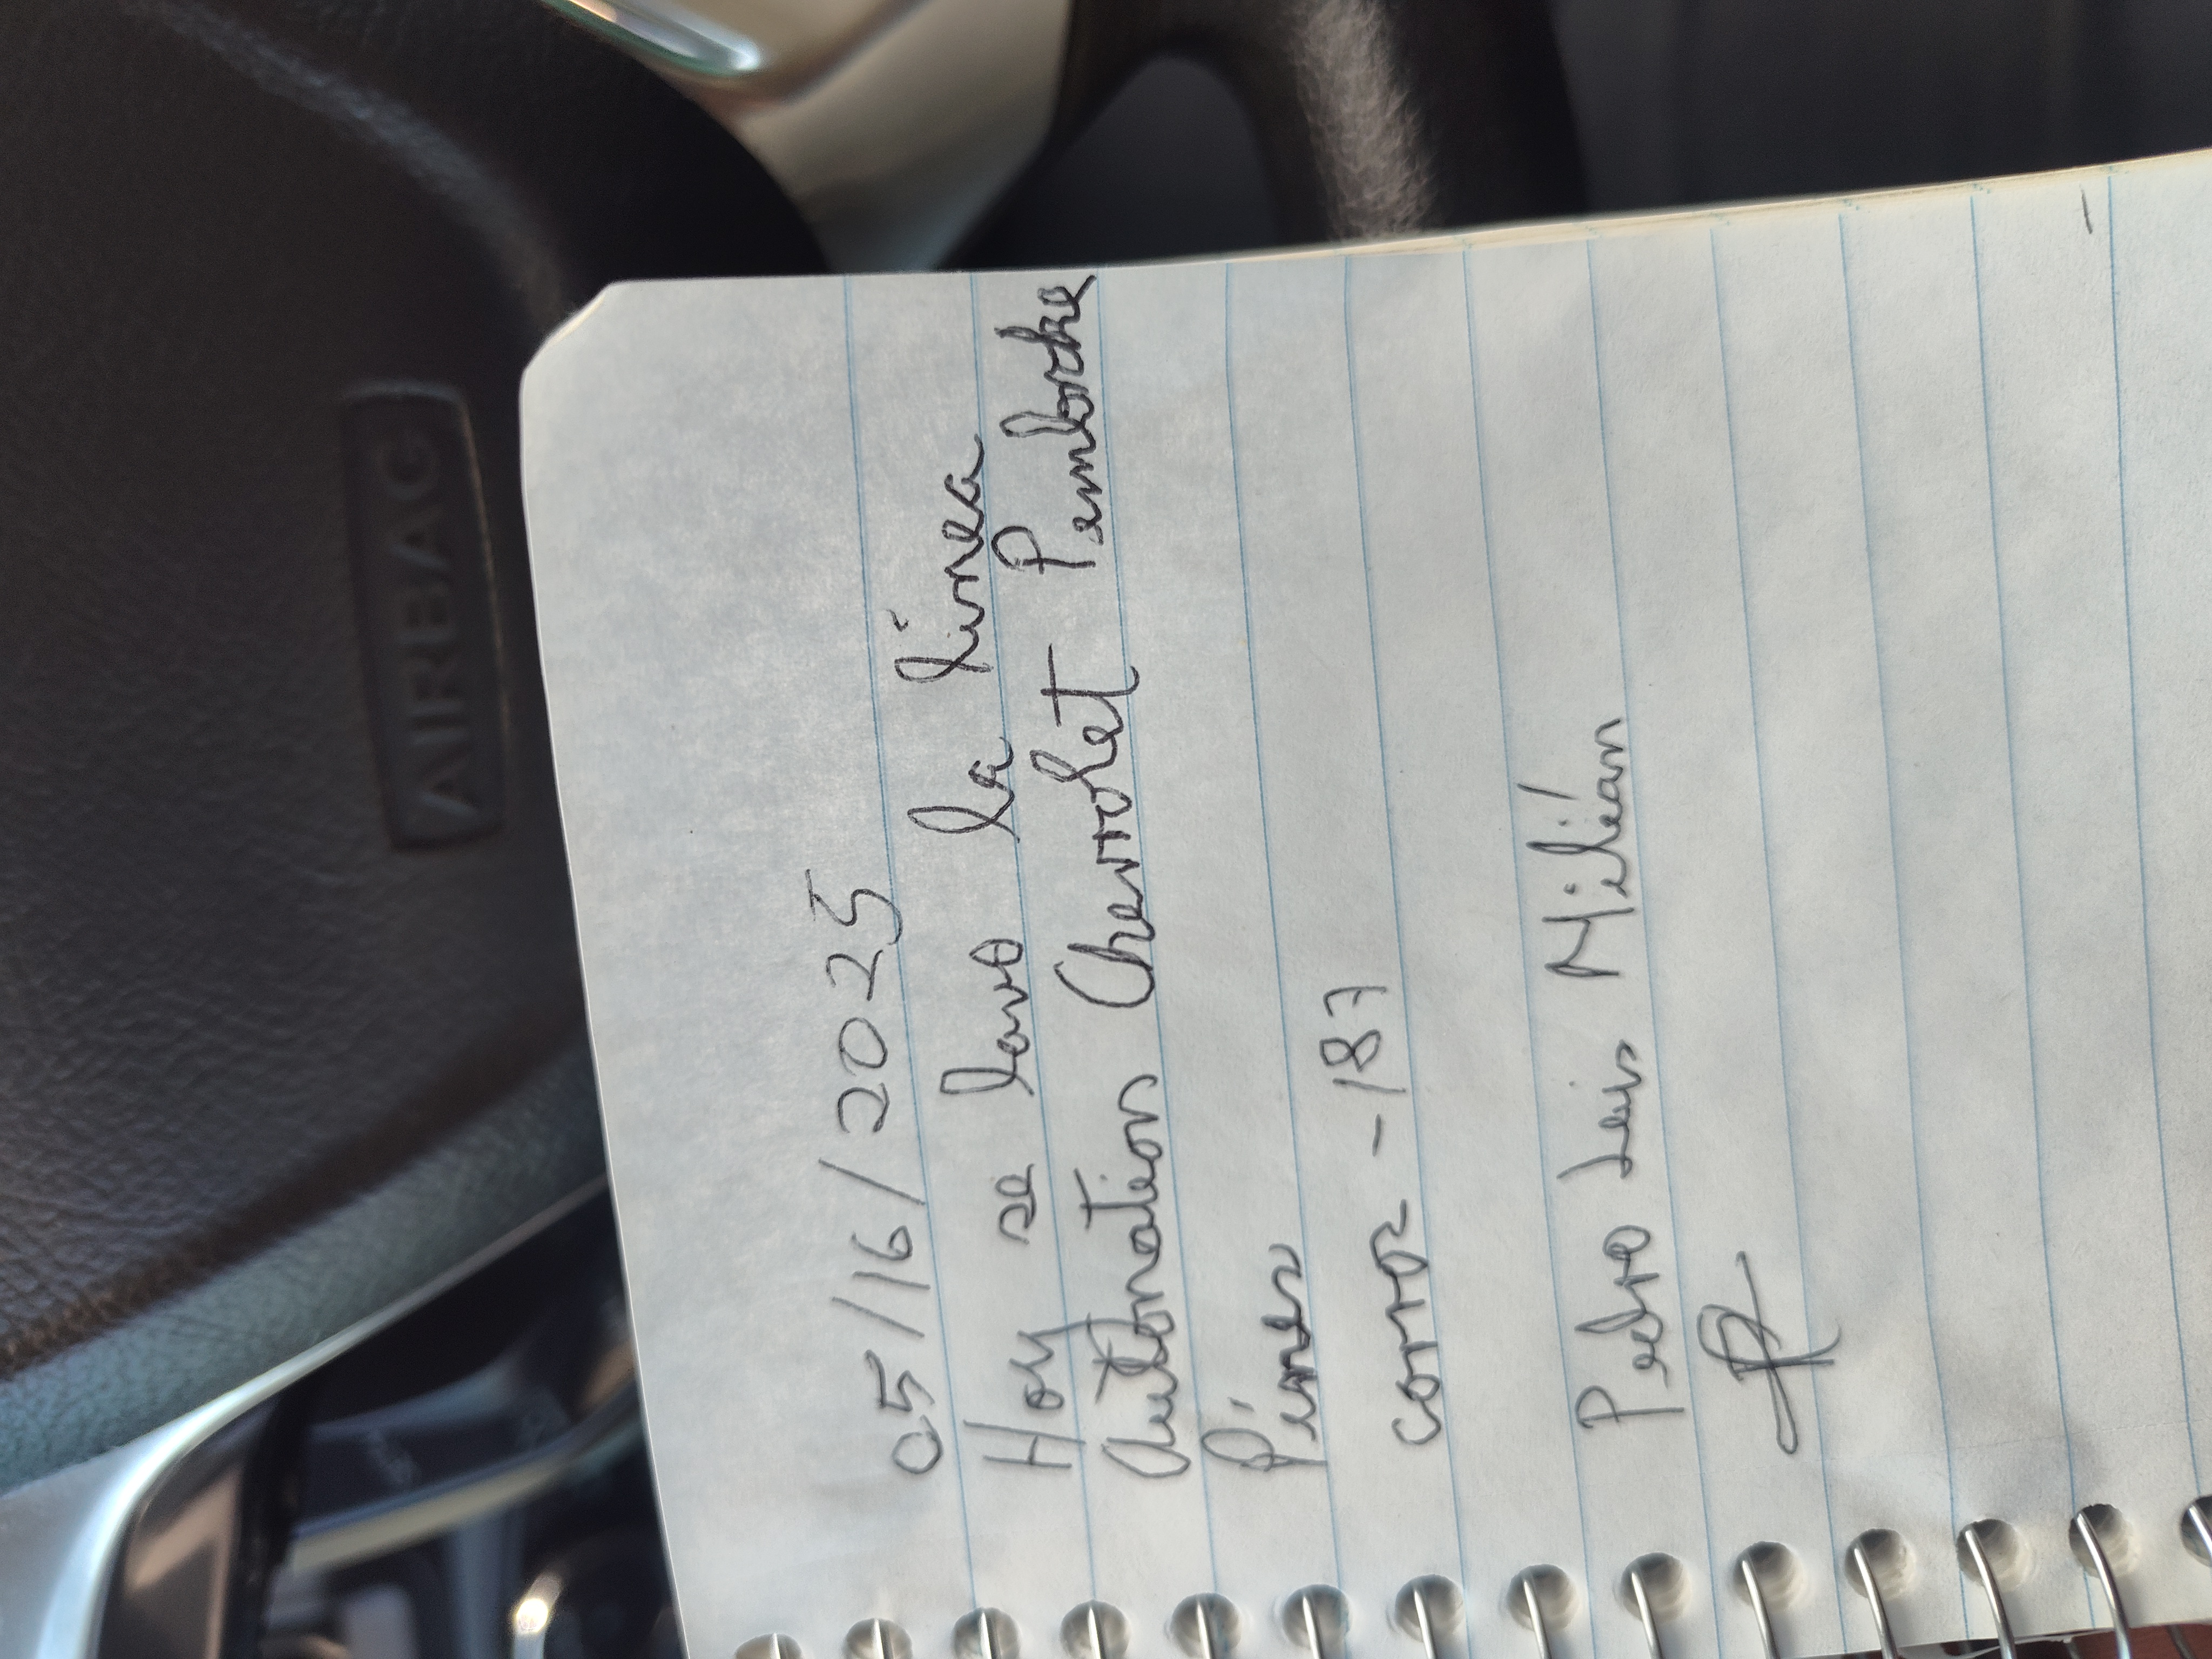 05/16/2025
Hoy se lavo la línea
Autonation Chevrolet Pembroke
Pines
carros - 187
Pedro Luis Milián
AIRBAG